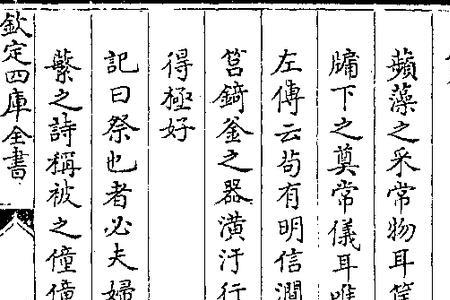 蘋藻之采常物耳
牖下之奠常儀耳
左傳云茍有明信澗
筥錡釜之器潢汙行
得極好
記曰祭也者必夫婦
蘩之詩稱被之僮僮
欽定四庫全書